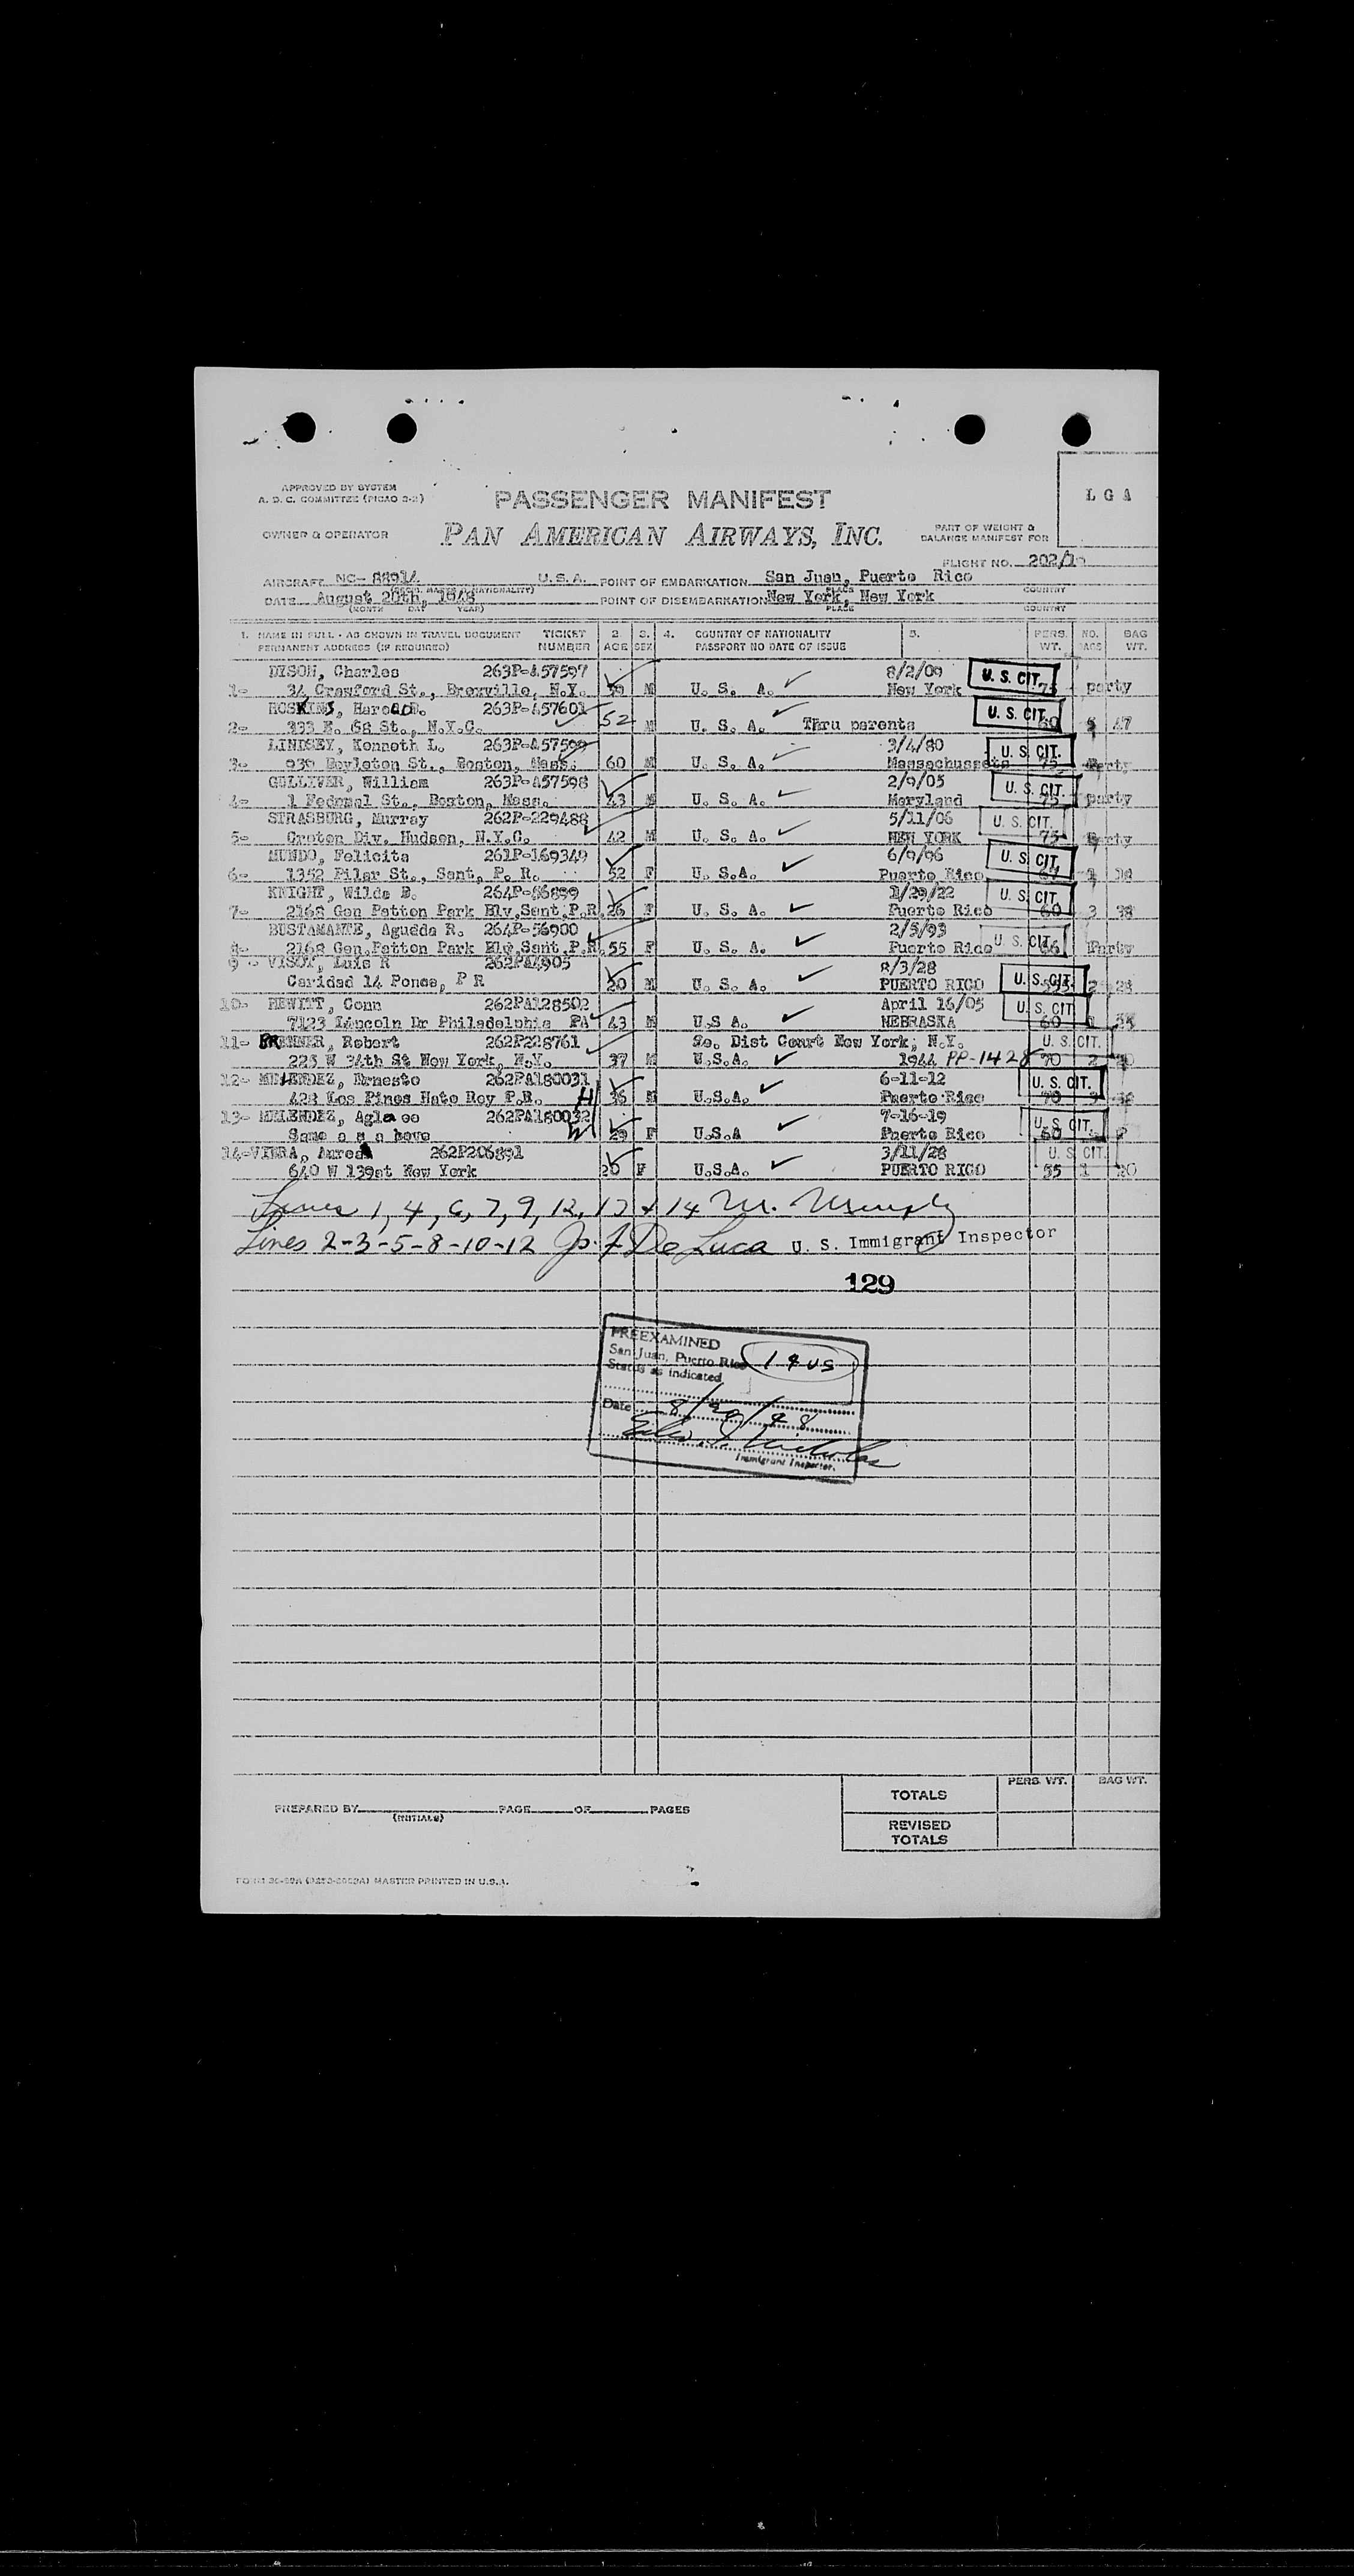 APPROVED BY SYSTEM
A. D. C. COMMITTEE (PICAO 2-2)
PASSENGER MANIFEST
L G A
OWNER & OPERATOR
PAN AMERICAN AIRWAYS, INC.
PART OF WEIGHT &
BALANCE MANIFEST FOR
FLIGHT NO. 202/19
AIRCRAFT NC- 88914 U.S.A. POINT OF EMBARKATION San Juan, Puerto Rico
DATE August 20th, 1948 POINT OF DISEMBARKATION New York, New York
(MONTH DAY YEAR) PLACE COUNTRY
1. NAME IN FULL - AS SHOWN IN TRAVEL DOCUMENT TICKET 2. 3. 4. COUNTRY OF NATIONALITY 5. PERS. NO. BAG
PERMANENT ADDRESS (IF REQUIRED) NUMBER AGE SEX PASSPORT NO DATE OF ISSUE WT. BAGS WT.
DYSON, Charles 263P-A57597 8/2/09 U. S. CIT.
1- 34 Crawford St., Bronxville, N.Y. 39 M U. S. A. New York 75 party
HOSKINS, Harold B. 263P-A57601 U. S. CIT.
2- 333 E. 68 St., N.Y.C. 52 M U. S. A. Thru parents 60 5 47
LINDSEY, Kenneth L. 263P-A57599 3/4/80 U. S. CIT.
3- 939 Boylston St., Boston, Mass. 60 M U. S. A. Massachussets 75 Party
GULLIVER, William 263P-A57598 2/9/05 U. S. CIT.
4- 1 Federal St., Boston, Mass. 43 M U. S. A. Maryland 75 party
STRASBURG, Murray 262P-229488 5/11/06 U. S. CIT.
5- Croton Div. Hudson, N.Y.C. 42 M U. S. A. NEW YORK 75 Party
MUNDO, Felicita 261P-169349 6/9/96 U. S. CIT.
6- 1352 Pilar St., Sant, P. R. 52 F U. S.A. Puerto Rico
KNIGHT, Wilda B. 264P-56899 1/29/22 U. S. CIT.
7- 2168 Gen Patton Park Blv,Sant,P.R. 26 F U. S. A. Puerto Rico 60 3 38
BUSTAMANTE, Agueda R. 264P-56900 2/5/93 U. S. CIT.
8- 2168 Gen.Patton Park Blv,Sant,P.R. 55 F U. S. A. Puerto Rico Party
9 - VISOT, Luis R 262PA4905 8/3/28
Caridad 14 Ponce, P R 20 M U. S. A. PUERTO RICO U. S. CIT. 2 23
10- HEWITT, Conn 262PA128502 April 16/05 U. S. CIT.
7123 Lincoln Dr Philadelphia PA 43 M U.S A. NEBRASKA 60 1
11- BRENNER, Robert 262P228761 So. Dist Court New York, N.Y. U. S. CIT.
225 W 34th St New York, N.Y. 37 M U.S.A. 1944 PP-1428 70 2
12- MELENDEZ, Ernesto 262PA180031 6-11-12 U. S. CIT.
428 Los Pinos Hato Rey P.R. H 36 M U.S.A. Puerto Rico 70 3
13- MELENDEZ, Aglae oo 262PA180032 7-16-19 U. S. CIT.
Same a s a bove W 29 F U.S.A Puerto Rico 60
14-VIERA, Aurea 262P206891 3/11/28 U. S. CIT.
640 W 139st New York 20 F U.S.A. PUERTO RICO 55 1 20
Lines 1, 4, 6, 7, 9, 12, 13 & 14 M. Murphy
Lines 2-3-5-8-10-12 Jo. F De Luca U. S. Immigrant Inspector
129
PREEXAMINED
San Juan, Puerto Rico 14 US
Status as indicated
Date 8/20/48
Immigrant Inspector.
PERS. WT. BAG WT.
TOTALS
PREPARED BY PAGE OF PAGES
(INITIALS)
REVISED
TOTALS
MASTER PRINTED IN U.S.A.